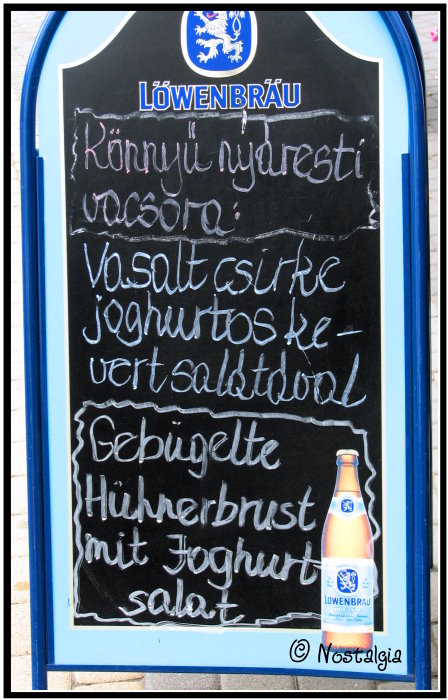 LÖWENBRÄU
Könnyü nyáresti
vacsora:
Vasalt csirke
joghurtos ke-
vert salátával
Gebügelte
Hühnerbrust
mit Joghurt
salat
LÖWENBRÄU
© Nostalgia